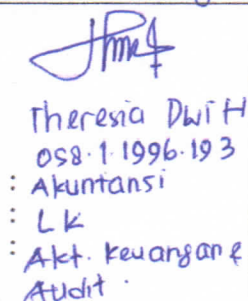 Theresia Dwi H
058.1.1996.193
: Akuntansi
: LK
: Akt. Keuangan &
Audit.